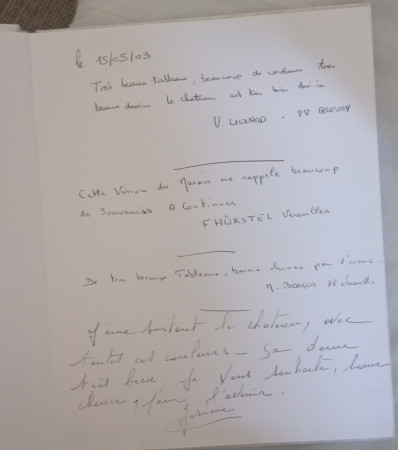 le 15/05/03
Très beaux tableaux, beaucoup de couleurs très
beaux dessins le chateau est très bien
V LEONARD - 78
Cette Vision du Marais me rappelle beaucoup
de Souvenirs. A Continuer
F. HÜRSTEL Versailles
De très beaux Tableaux, bonne chance pour l'avenir.
J'aime surtout le chateau, avec
toutes ces couleurs - ça donne
très bien. Je Vous souhaite, bonne
chance, pour l'avenir.